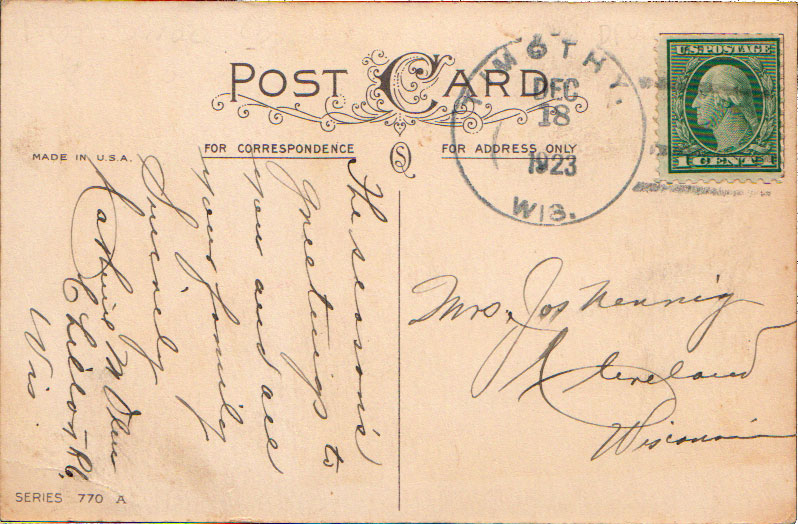 POST CARD
MADE IN U.S.A.
FOR CORRESPONDENCE
FOR ADDRESS ONLY
TIMOTHY.
DEC
18
1923
WIS.
U.S. POSTAGE
1 CENT 1
The season's
greetings to
you and all
your family
Sincerely
Chilton R1.
Wis.
Mrs. Jos Nennig
Cleveland
Wisconsin
SERIES 770 A